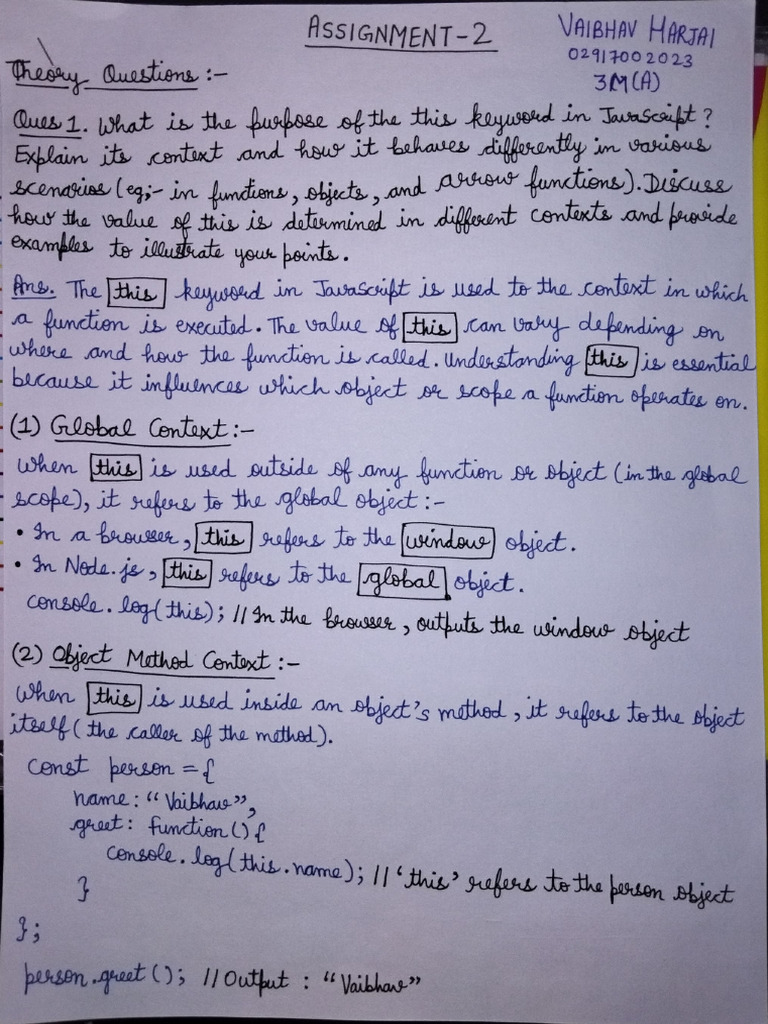 ASSIGNMENT-2
VAIBHAV HARJAI
02917002023
3M(A)
Theory Questions :-
Ques 1. What is the purpose of the this keyword in JavaScript?
Explain its context and how it behaves differently in various
scenarios (eg;- in functions, objects, and arrow functions). Discuss
how the value of this is determined in different contexts and provide
examples to illustrate your points.
Ans. The this keyword in JavaScript is used to the context in which
a function is executed. The value of this can vary depending on
where and how the function is called. Understanding this is essential
because it influences which object or scope a function operates on.
(1) Global Context :-
When this is used outside of any function or object (in the global
scope), it refers to the global object :-
• In a browser, this refers to the window object.
• In Node.js, this refers to the global object.
console.log(this); // In the browser, outputs the window object
(2) Object Method Context :-
When this is used inside an object's method, it refers to the object
itself (the caller of the method).
const person = {
name: "Vaibhav",
greet: function() {
console.log(this.name); // 'this' refers to the person object
}
};
person.greet(); // Output : "Vaibhav"